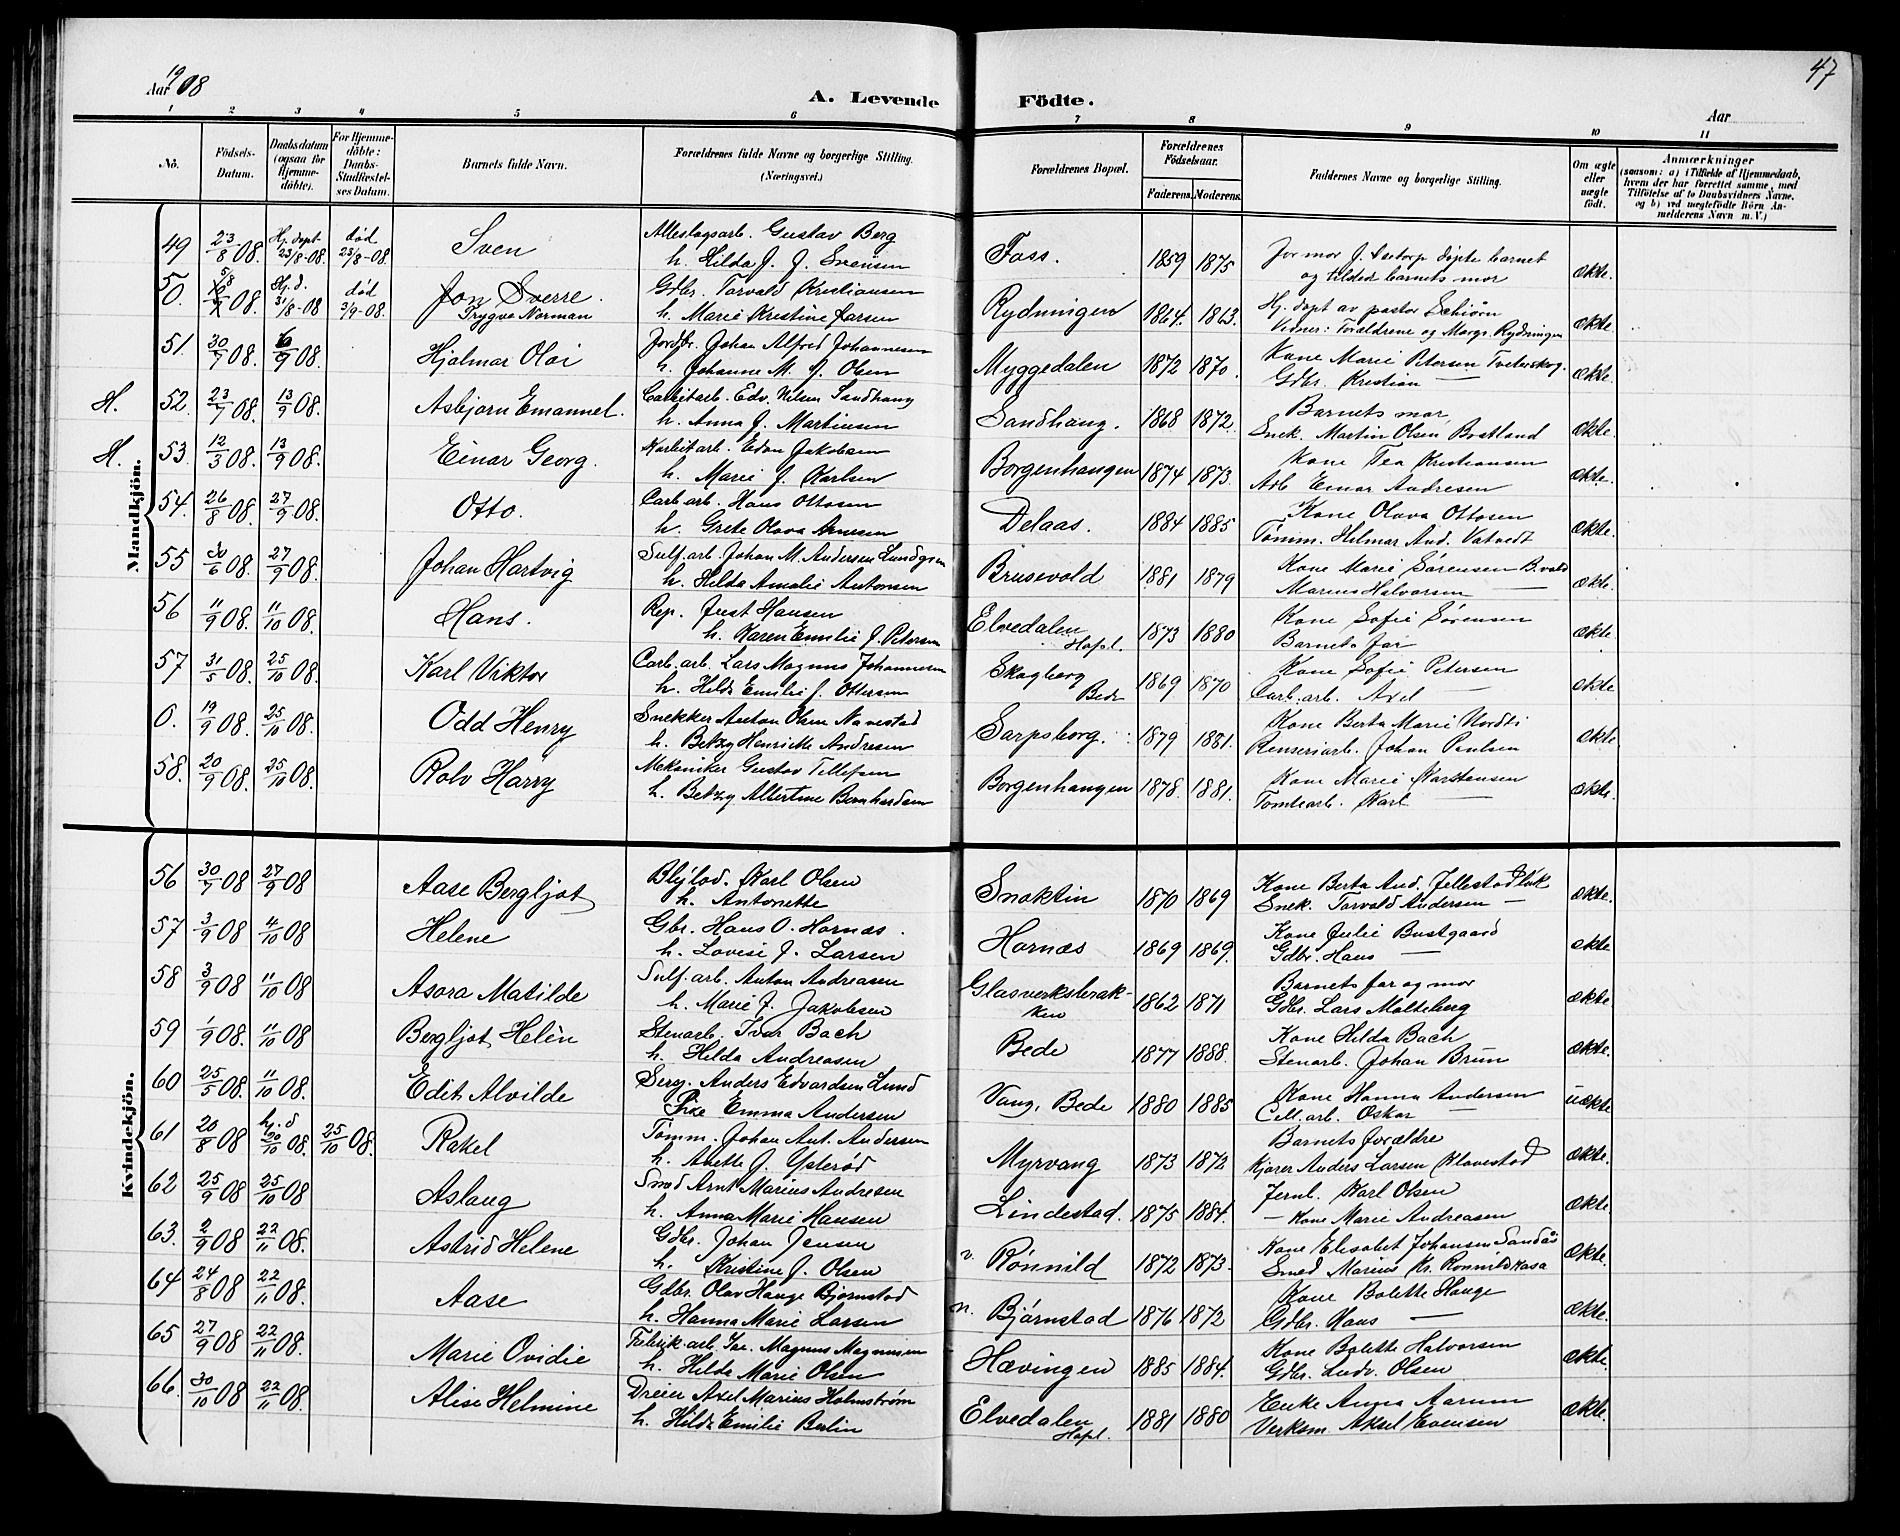 Aar 1908
A. Levende Födte.
47
Aar
1 2 3 4 5 6 7 8 9 10 11
No. Födsels-Datum. Daabsdatum (ogsaa for Hjemme-döbte). For Hjemme-döbte: Daabs-Stadfæstelses Datum. Barnets fulde Navn. Forældrenes fulde Navne og borgerlige Stilling. (Næringsvei.) Forældrenes Bopæl. Forældrenes Födselsaar. Faderens. Moderens. Faddernes Navne og borgerlige Stilling. Om ægte eller uægte födt. Anmærkninger (saasom: a) i Tilfælde af Hjemmedaab, hvem der har forrettet samme, med Tilföielse af to Daabsvidners Navne, og b) ved uegtefödte Börn Anmelderens Navn m. V.)
Mandkjön.
49 23/8 08. Hj. døpt 23/8-08. død 23/8-08. Sven Gustav Berg Foss. 1859 1875 Jormor J. døpte barnet økte.
h. Hilda J. J. Svensen og tilsted barnets mor
50. 5/8 08. Hj. d. 31/8-08 død 3/9-08. Jon Sverre. Gdbr. Torvald Kristiansen Rydningen 1864. 1863. Hj. døpt av pastor Schiørn økte.
Trygve Norman h. Marie Kristine Larsen Vidner: Forældrene og Margr. Rydningen
51. 30/7 08. 6/9 08. Hjalmar Olai Jordbr. Johan Alfred Johannesen Myggedalen 1872 1870. Kone Marie Petersen Tveterskog. økte.
h. Johanne M. J. Olsen Gdbr. Kristian —
H. 52. 23/7 08. 13/9 08. Asbjørn Emanuel. Carbitarb. Edv. Nilsen Sandhaug Sandhaug. 1868 1872. Barnets mor økte.
h. Anna J. Martinsen Snek. Martin Olsen Bostland
H. 53. 12/3 08. 13/9 08. Einar Georg. Karbitarb. Edvn Jakobsen Borgenhaugen 1874 1873. Kone Tea Kristiansen økte.
h. Marie J. Karlsen Arb Einar Andresen
54. 26/8 08. 27/9 08. Otto. Carb. arb. Hans Ottosen Delaas. 1884 1885 Kone Olava Ottosen økte.
h. Grete Olava Arnesen Tømm. Helmar And. Vatvedt
55 30/6 08. 27/9 08. Johan Hartvig Sulf. arb. Johan M. Andersen Lundgren Brusevold 1881 1879 Kone Marie Sørensen B.vold økte.
h. Hilda Amalie Antonsen Marius Halvorsen —
56 11/9 08. 11/10 08. Hans. Rep. Just Hansen Elvedalen Hafsl. 1873 1880 Kone Sofie Sørensen økte.
h. Karen Emilie J. Petersen Barnets far
57 31/5 08. 25/10 08. Karl Viktor Carb. arb. Lars Magnus Johannesen Skogberg Bede 1869 1870 Kone Sofie Petersen økte
h. Hilda Emilie J. Ottersen Carb. arb. Axel —
0. 19/9 08. 25/10 08. Odd Henry Snekker Anton Olsen Navestad Sarpsborg. 1879 1881. Kone Berta Marie Nordti økte
h. Betzy Henriette Andresen Renseriarb. Johan Paulsen
58. 20/9 08. 25/10 08. Rolv Harry Mekaniker Gustav Tellefsen Borgenhaugen 1878. 1881. Kone Marie Karstensen økte.
h. Betzy Albertine Bernhardsen Tomtearb. Karl —
Kvindekjön.
56 30/7 08 27/9 08 Aase Bergljot Karl Olsen Snoktin 1870 1869 Kone Berta And. økte.
h. Antonette Snek. Torvald Andersen —
57 3/9 08 4/10 08 Helene Gbr. Hans O. Hornæs. Hornæs 1869 1869. Kone Julie Bustgaard økte
h. Lovise J. Larsen Gdbr. Hans —
58 3/9 08 11/10 08 Asora Matilde Sulf. arb. Anton Andreasen Glasverksbrakken 1862 1871 Barnets far og mor økte
h. Marie J. Jakobsen Gdbr. Lars Molteberg
59 1/9 08. 11/10 08 Bergljot Helèn Stenarb. Ivar Bach Bede 1877 1888. Kone Hilda Bach økte.
h. Hilda Andreasen Stenarb. Johan Brun
60 25/5 08. 11/10 08. Edit Alvilde Serg. Anders Edvardsen Lund Vang, Bede 1880 1885 Kone Hanna Andersen uækte
Pike Emma Andersen Cell. arb. Oskar —
61 20/8 08 hj. d 20/10 08. 25/10 08. Rakel Tømm. Johan Ant. Andersen Myrvang 1873 1872 Barnets forældre økte.
h. Anette J. Ysterød Kjører Anders Larsen Klavestad
62 25/9 08 25/10 08 Aslaug Smed Arnt Marius Andresen Lindestad. 1875 1884. Jernb. Karl Olsen økte.
h. Anna Marie Hansen — Kone Marie Andreasen
63. 2/9 08 22/11 08. Astrid Helene Gdbr. Johan Jensen v. Rønnild 1872 1873. Kone Elisabet Johansen Sandås økte.
h. Kristine J. Olsen Smed Marius Kr. Rønnildkasa
64 24/8 08 22/11 08. Aase Gdbr. Olav Hauge Bjørnstad n. Bjørnstad 1876 1872 Kone Bolette Hauge økte.
h. Hanna Marie Larsen Gdbr. Hans —
65 27/9 08 22/11 08. Marie Ovidie Fabrik arb. Magnus Magnussen Hævingen 1885 1884. Kone Bolette Halvorsen økte.
h. Hilda Marie Olsen Gdbr. Ludv. Olsen
66. 30/10 08 22/11 08. Alise Helmine Dreier Axel Marius Holmstrøm Elvedalen Hafsl. 1881 1880 Enke Anna Aarum økte.
h. Hilda Emilie Berlin Verksm. Aksel Evensen